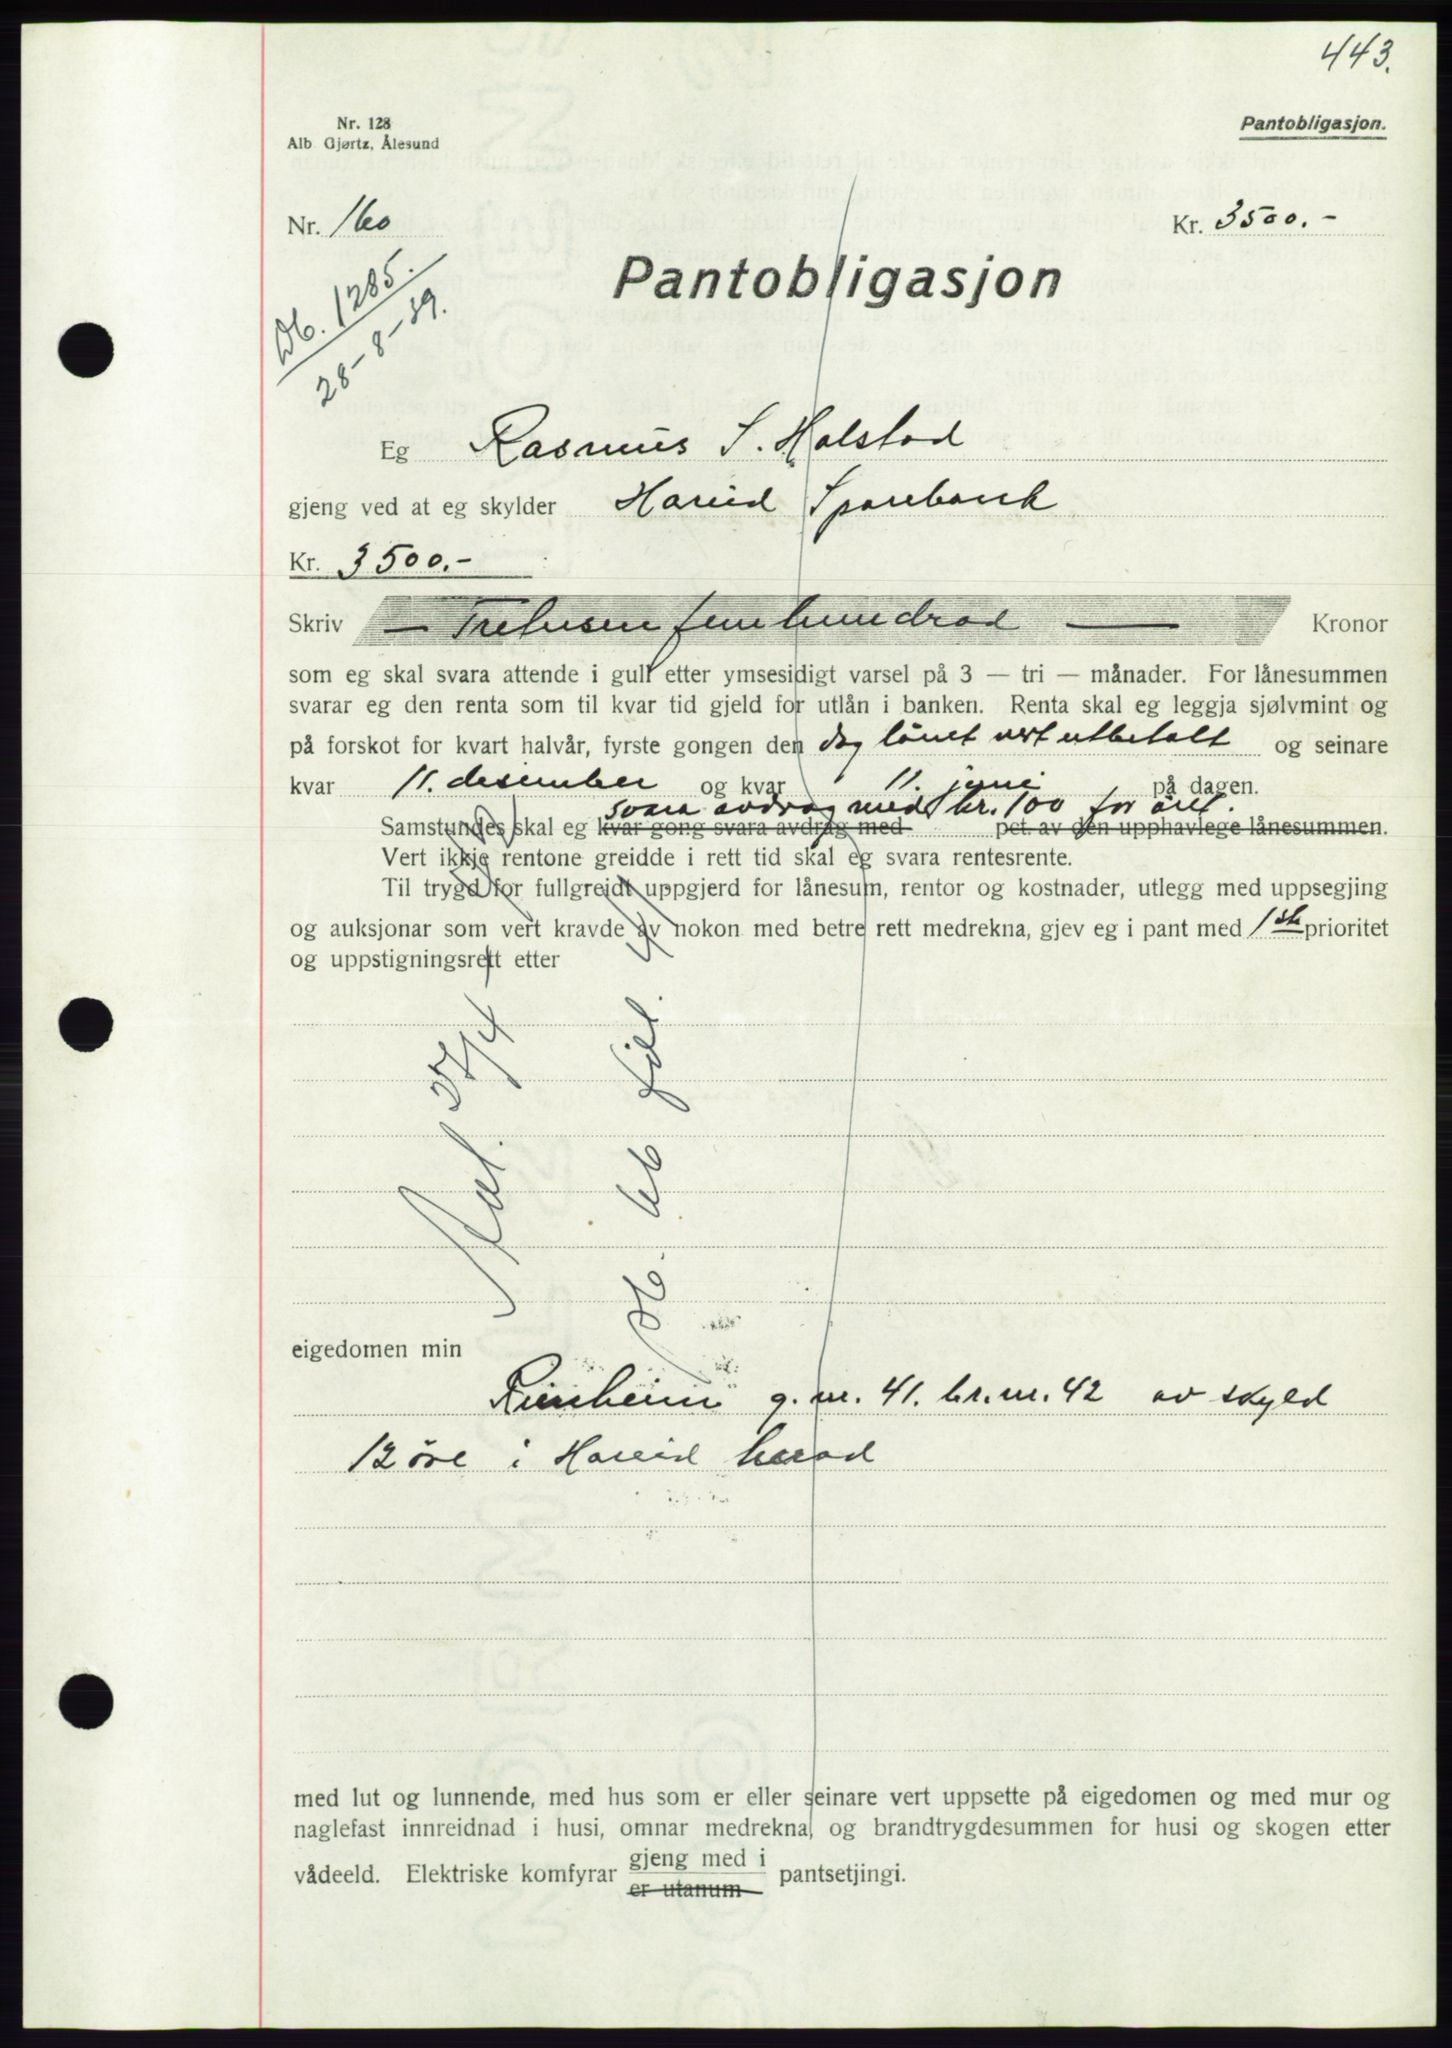 443.
Nr. 128
Alb. Gjørtz, Ålesund
Pantobligasjon.
Nr. 160
Kr. 3500.-
Db. 1285.
28-8-39.
Pantobligasjon
Eg Rasmus S. Holstad
gjeng ved at eg skylder Hareid Sparebank
Kr. 3500.-
Skriv — Tretusen femhundrad — Kronor
som eg skal svara attende i gull etter ymsesidigt varsel på 3 — tri — månader. For lånesummen
svarar eg den renta som til kvar tid gjeld for utlån i banken. Renta skal eg leggja sjølvmint og
på forskot for kvart halvår, fyrste gongen den dag lånet vert utbetalt og seinare
kvar 11. desember og kvar 11. juni på dagen.
svara avdrag med kr. 100 for året.
Samstundes skal eg kvar gong svara avdrag med pct. av den upphavlege lånesummen.
Vert ikkje rentone greidde i rett tid skal eg svara rentesrente.
Til trygd for fullgreidt uppgjerd for lånesum, rentor og kostnader, utlegg med uppsegjing
og auksjonar som vert kravde av nokon med betre rett medrekna, gjev eg i pant med 1ste prioritet
og uppstigningsrett etter
Avl. 27/4-42
Db. 66 fol. 41
eigedomen min
g.nr. 41. br.nr. 42 av skyld
12 øre i Hareid herad
med lut og lunnende, med hus som er eller seinare vert uppsette på eigedomen og med mur og
naglefast innreidnad i husi, omnar medrekna, og brandtrygdesummen for husi og skogen etter
vådeeld. Elektriske komfyrar gjeng med i pantsetjingi.
er utanum